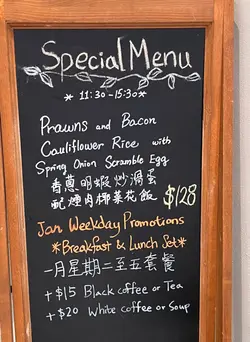 Special Menu
* 11:30-15:30 *
Prawns and Bacon
Cauliflower Rice with
Spring Onion Scramble Egg
香蔥明蝦炒滑蛋
配煙肉椰菜花飯 $128
Jan Weekday Promotions
*Breakfast & Lunch Set*
一月星期二至五套餐
+$15 Black coffee or Tea
+$20 White coffee or Soup